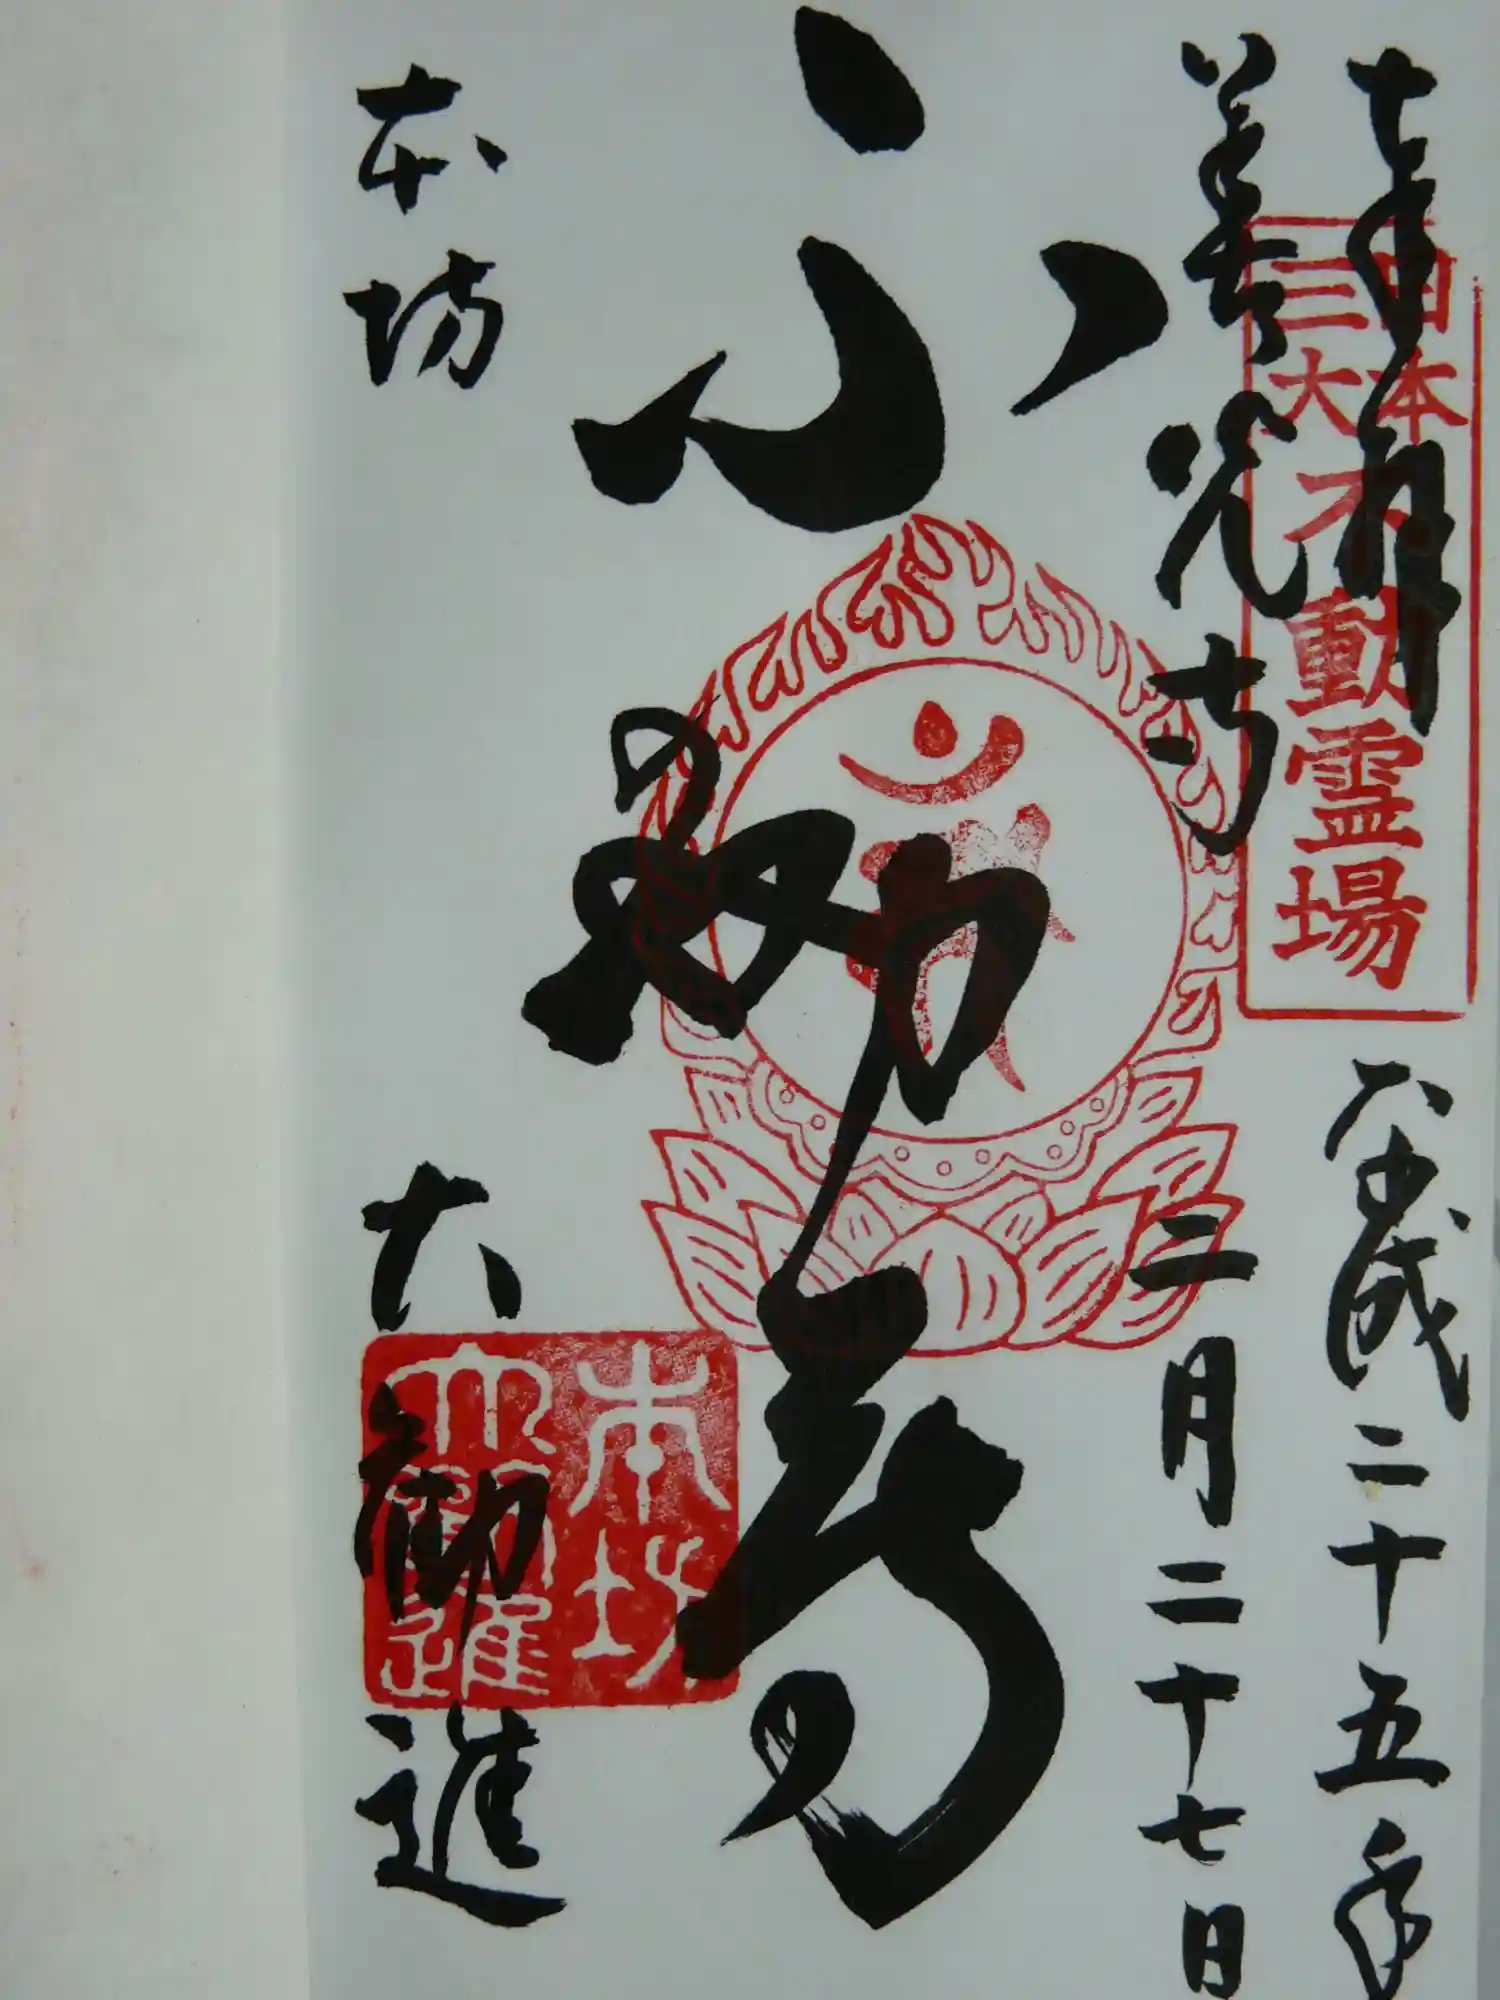 奉拝
平成二十五年
日本
三大
不動霊場
善光寺
三月二十七日
不動尊
本坊
大勧進
本坊
大勧進